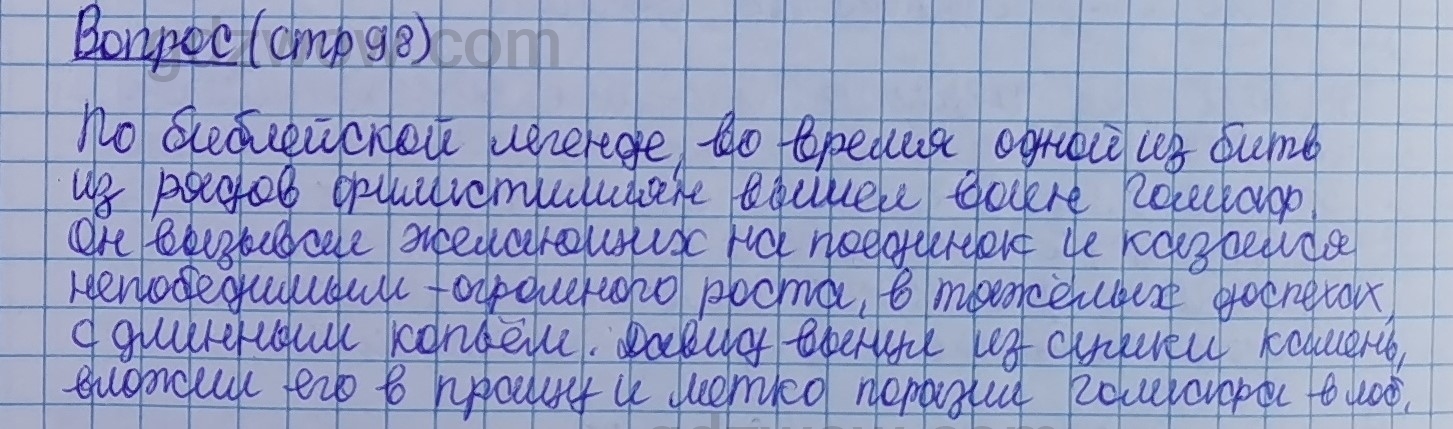 Вопрос (стр 98)
По библейской легенде, во время одной из битв
из рядов филистимлян вышел воин Голиаф.
Он вызывал желающих на поединок и казался
непобедимым - огромного роста, в тяжёлых доспехах,
с длинным копьём. Давид вынул из сумки камень,
вложил его в пращу и метко поразил Голиафа в лоб.